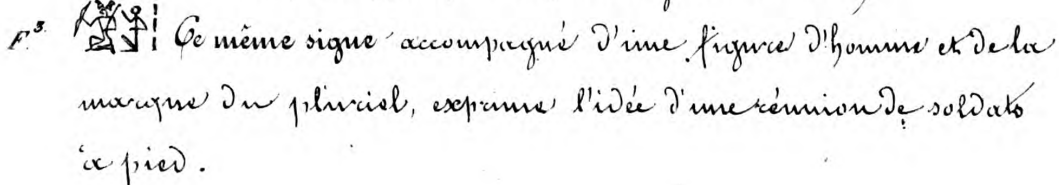 F.3. Ce même signe accompagné d'une figure d'homme et de la
marque du pluriel, exprime l'idée d'une réunion de soldats
à pied.